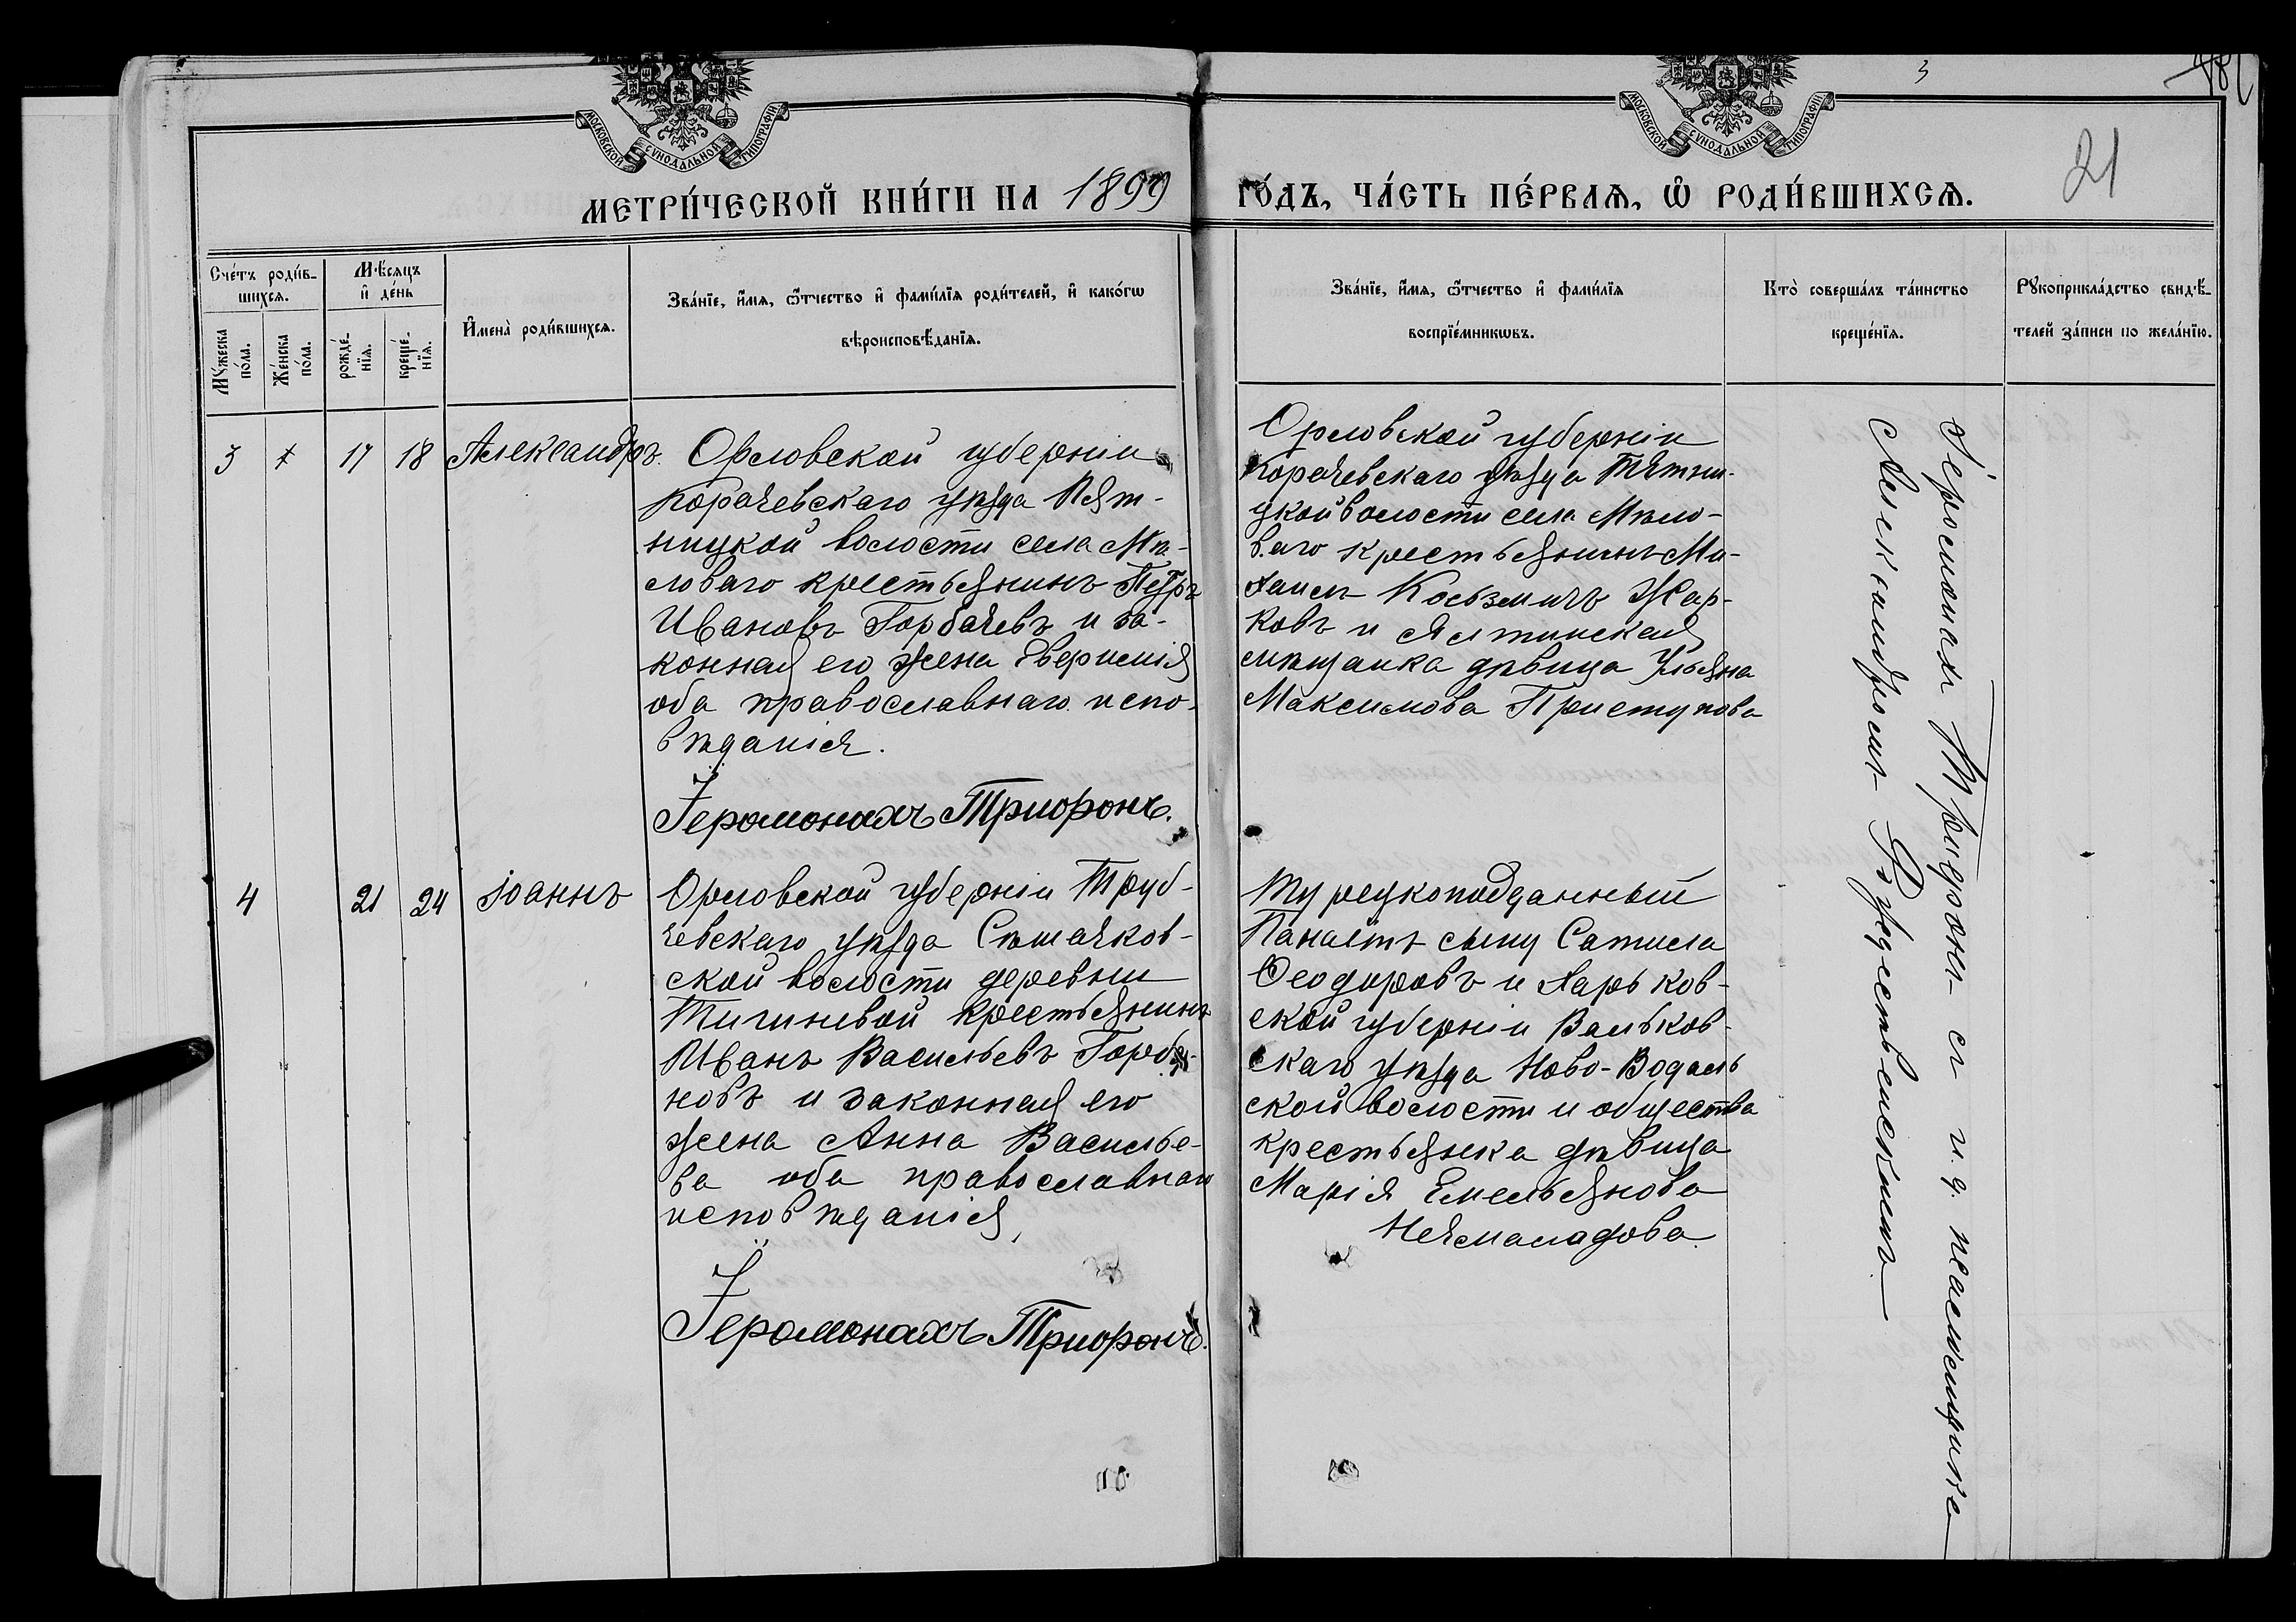 3
181
21
МОСКОВСКОЙ СУНОДАЛЬНОЙ ТИПОГРАФІИ
МОСКОВСКОЙ СУНОДАЛЬНОЙ ТИПОГРАФІИ
МЕТРИ́ЧЕСКОЙ КНИ́ГИ НА 1899 ГО́ДЪ, ЧА́СТЬ ПЕ́РВАѦ, Ѡ҆ РОДИ́ВШИХСѦ.
Сче́тъ роди́в-
шихсѧ.
Мꙋ́жеска
по́ла.
Же́нска
по́ла.
Мѣ́сѧцъ
и҆ де́нь
рожде́-
нїѧ.
креще́-
нїѧ.
И҆мена̀ роди́вшихсѧ.
Зва́нїе, и҆́мѧ, ѻ҆́тчество и҆ фами́лїѧ роди́телей, и҆ како́гѡ
вѣроисповѣ́данїѧ.
Зва́нїе, и҆́мѧ, ѻ҆́тчество и҆ фами́лїѧ
воспрїе́мникѡвъ.
Кто̀ соверша́лъ та́инство
креще́нїѧ.
Рꙋкоприкла́дство свидѣ́-
телей за́писи по жела́нїю.
3
17
18
Александръ.
Орловской губерніи
Корачевскаго уѣзда Пят-
ницкой волости села Мѣ-
словаго крестьянинъ Петръ
Ивановъ Горбачевъ и за-
конная его жена Евѳимія
оба православнаго испо-
вѣданія.
Іеромонахъ Трифонъ.
Орловской губерніи
Корачевскаго уѣзда Пятни-
цкой волости села Мѣло-
ваго крестьянинъ Ми-
хаилъ Козьмичъ Жар-
ковъ и Ялтинская
мѣщанка дѣвица Ульяна
Максимова Приступова
Іеромонахъ Трифонъ съ и. д. псаломщика
Александромъ Рождественскимъ
4
21
24
Іоаннъ
Орловской губерніи Труб-
чевскаго уѣзда Сѣмячков-
ской волости деревни
крестьянинъ
Иванъ Васильевъ
новъ и законная его
жена Анна Василье-
ва оба православнаго
исповѣданія,
Іеромонахъ Трифонъ.
Турецкоподданный
Панаіотъ сынъ
Ѳеодоровъ и Харьков-
ской губерніи Валков-
скаго уѣзда Ново-Водолж
ской волости и общества
крестьянка дѣвица
Марія Емельянова